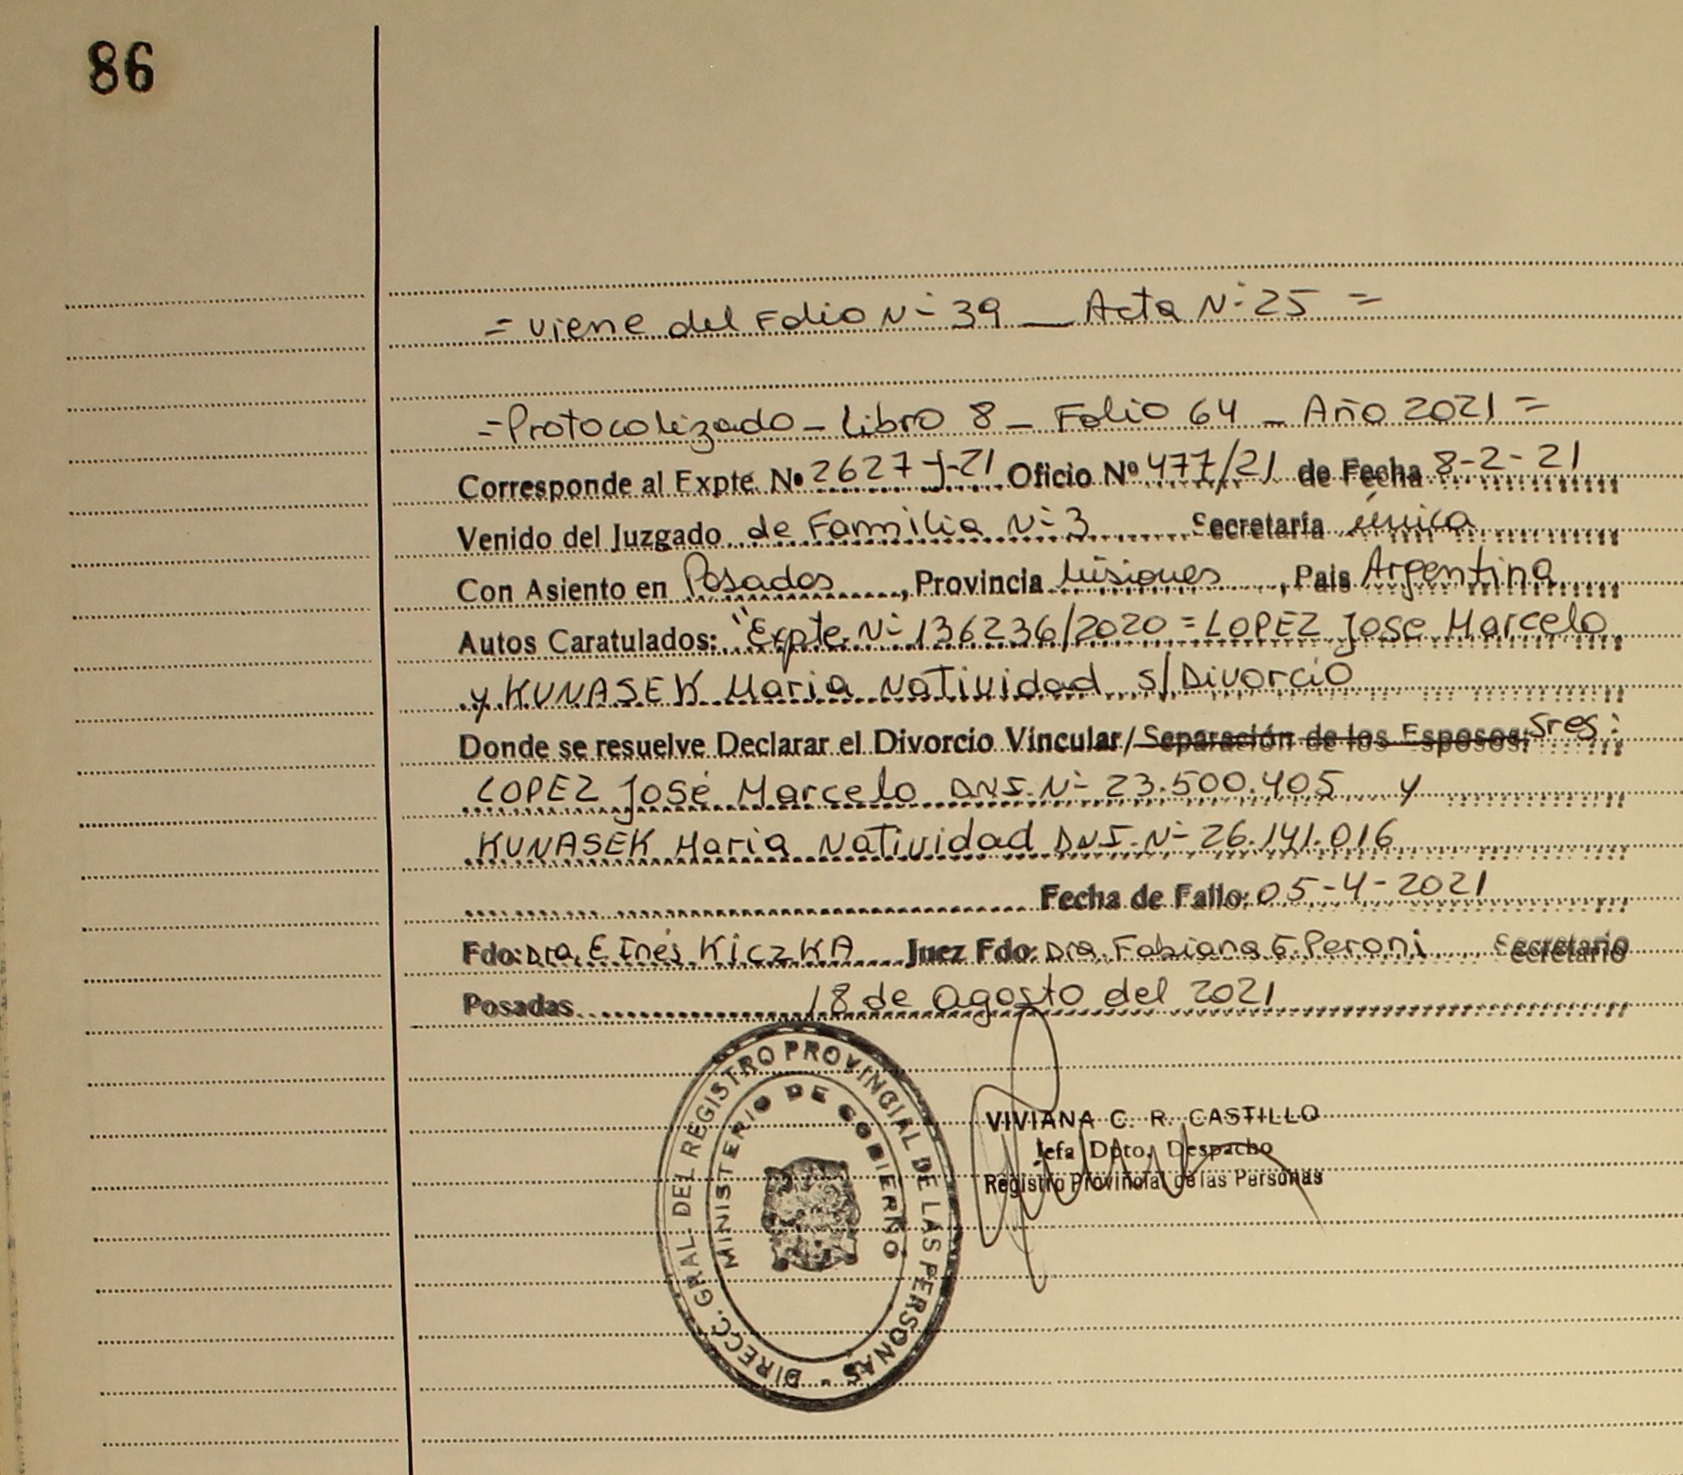 86
= viene del Folio Nº 39 _ Acta Nº 25 =
= Protocolizado _ Libro 8 _ Folio 64 _ Año 2021 =
Corresponde al Expte. Nº 2627-J-21 Oficio Nº 477/21 de Fecha 8-2-21
Venido del Juzgado de Familia Nº 3 Secretaría única
Con Asiento en Posadas, Provincia Misiones, Pais Argentina
Autos Caratulados: "Expte. Nº 136236/2020 = LOPEZ Jose Marcelo
y KUNASEK Maria Natividad s/Divorcio
Donde se resuelve Declarar el Divorcio Vincular/Separación de los Esposos: Sres:
LOPEZ José Marcelo DNI. Nº 23.500.405 y
KUNASEK Maria Natividad DNI. Nº 26.141.016
Fecha de Fallo: 05-4-2021
Fdo: Dra. E Inés KiczKA Juez Fdo: Dra. Fabiana G. Peroni Secretario
Posadas 18 de agosto del 2021
DIRECC. GRAL. DEL REGISTRO PROVINCIAL DE LAS PERSONAS
MINISTERIO DE GOBIERNO
VIVIANA C. R. CASTILLO
Jefa Dpto. Despacho
Registro Provincial de las Personas